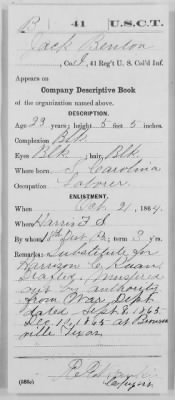 B 41 U.S.C.T.
Jack Benton
, Co. I, 41 Reg't U. S. Col'd Inf.
Appears on
Company Descriptive Book
of the organization named above.
DESCRIPTION.
Age 23 years; height 5 feet 5 inches.
Complexion Blk.
Eyes Blk, hair, Blk.
Where born S. Carolina
Occupation Laborer
ENLISTMENT.
When Oct. 21, 1864.
Where Harris
By whom Dist Pa; term 3 y'rs.
Remarks: Substitute for
Harrison C.
Drafted, Mustered
out by authority
from War Dept
dated Sept. 8. 1865
Dec. 10. 1865 at Browns
ville Texas
Copyist.